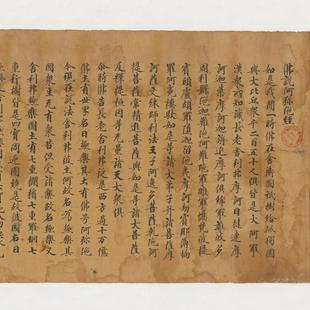 佛說阿彌陀經
如是我聞一時佛在舍衛國祇樹給孤獨園
與大比丘眾千二百五十人俱皆是大阿羅
漢眾所知識長老舍利弗摩訶目揵連摩
訶迦葉摩訶迦旃延摩訶俱絺羅離婆多
周利槃陀迦難陀阿難陀羅睺羅憍梵波提
賓頭盧頗羅墮迦留陀夷摩訶劫賓那薄拘
羅阿㝹樓馱如是等諸大弟子并諸菩薩摩
訶薩文殊師利法王子阿逸多菩薩乾陀訶
提菩薩常精進菩薩與如是等諸大菩薩
及釋提桓因等无量諸天大眾俱
尒時佛告長老舍利弗從是西方過十万億
佛土有世界名曰極樂其土有佛号阿彌陀
今現在說法舍利弗彼土何故名為極樂其
國眾生无有眾苦但受諸樂故名極樂又
舍利弗極樂國土七重欄楯七重羅網七
重行樹皆是四寶周迊圍繞是故彼國名曰